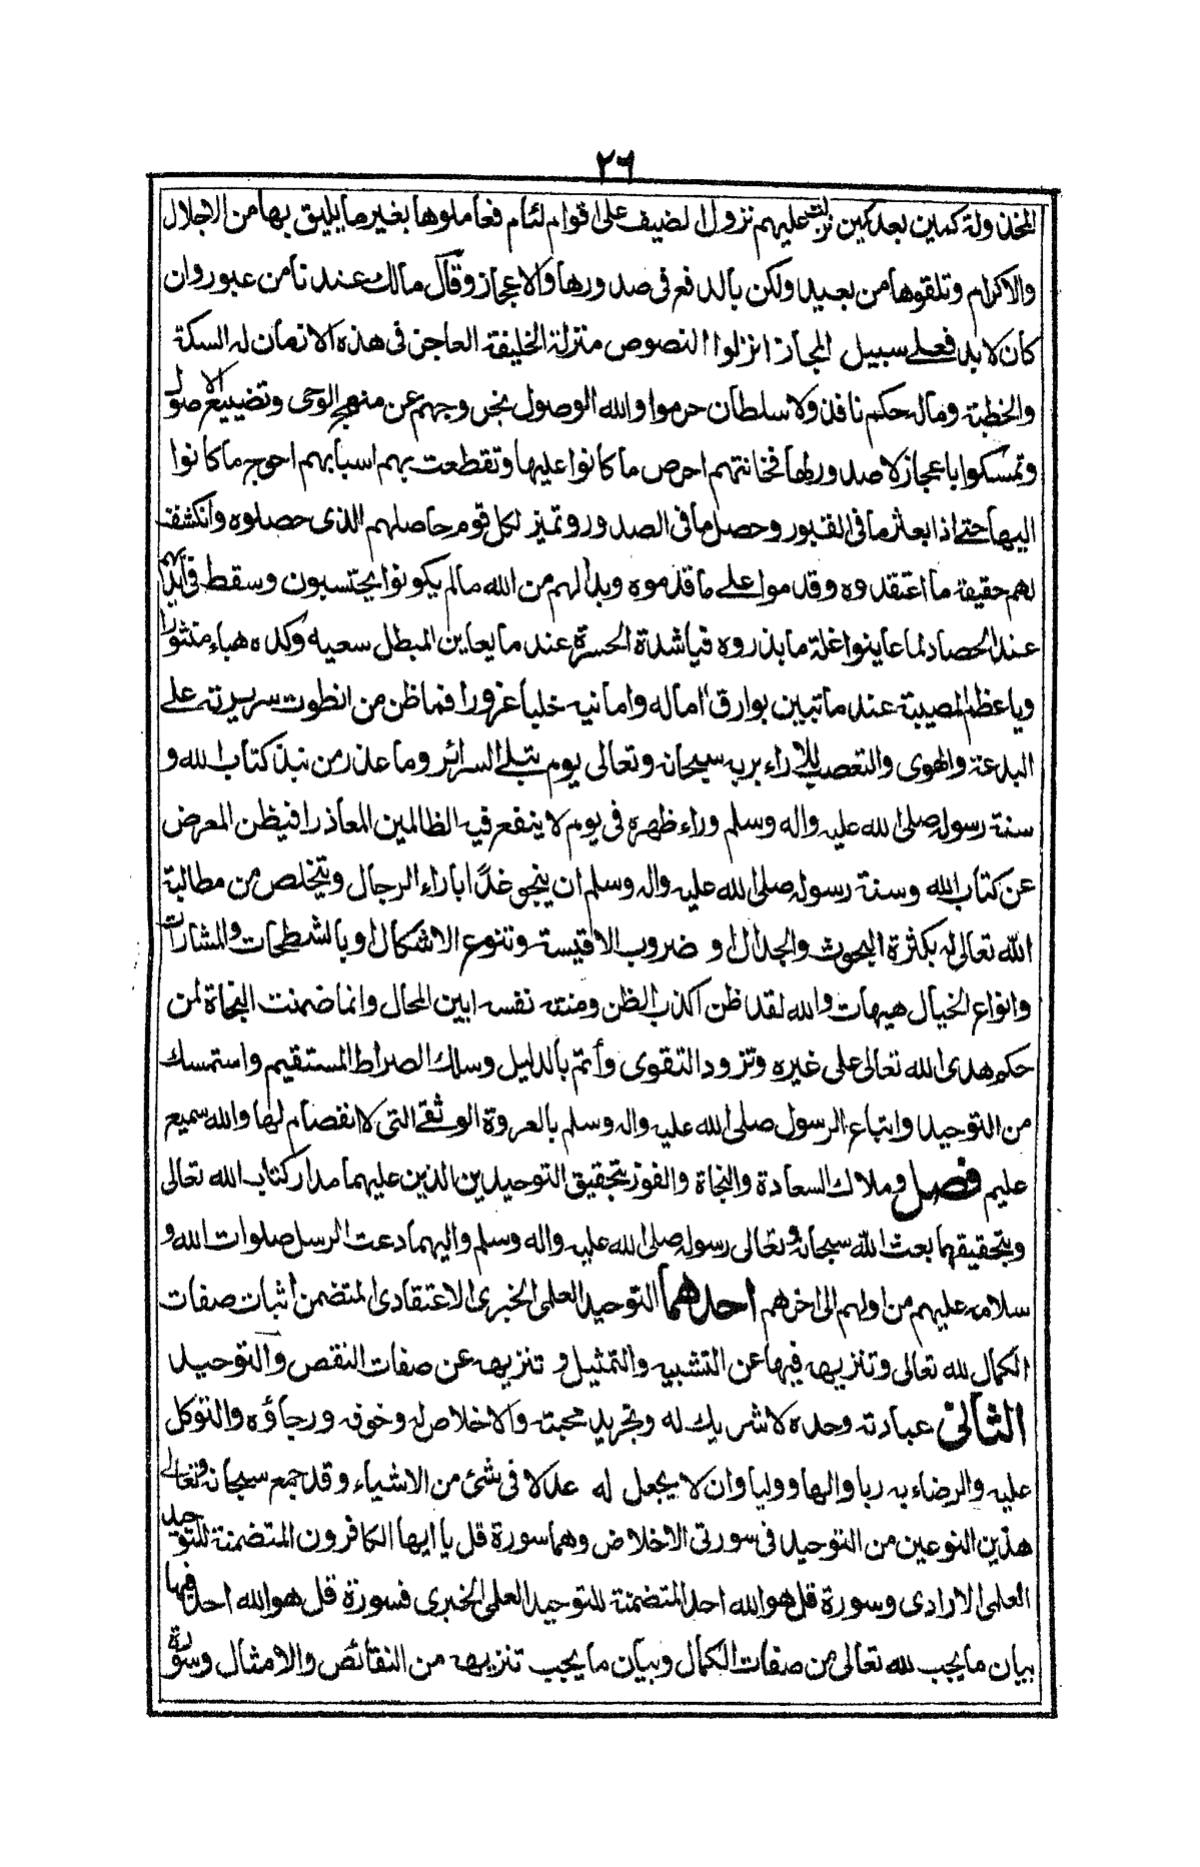 ٢٦
المخذولة كمين بعد كمين نزلت عليهم نزول الضيف على اقوام لئام فعاملوها بغير ما يليق بها من الاجلال
والاكرام وتلقوها من بعيد ولكن بالدفع فى صدورها والاعجاز وقال مالك عندنا من عبور وان
كان لا بد فعلے سبيل المجاز انزلوا النصوص منزلة الخليفة العاجز فى هذه الازمان له السكة
والخطبة وماله حكم نافذ ولا سلطان حرموا والله الوصول بخروجهم عن منهج الوحى وتضييع الاصول
وتمسكوا باعجاز لا صدور لها فخانتهم احرص ما كانوا عليها وتقطعت بهم اسبابهم احوج ما كانوا
اليها حتے اذا بعثر ما فى القبور وحصل ما فى الصدور وتميز لكل قوم حاصلهم الذى حصلوه وانكشف
لهم حقيقة ما اعتقدوه وقدموا علے ما قدموه وبدا لهم من الله مالم يكونوا يحتسبون وسقط فى ايديهم
عند الحصاد لما عاينوا غلة ما بذروه فيا شدة الحسرة عند ما يعاين المبطل سعيه وكده هباء منثورا
ويا عظم المصيبة عند ما تبين بوارق اماله وامانيه خلبا غرورا فما ظن من انطوت سريرته علے
البدعة والهوى والتعصب للاراء بربه سبحانه وتعالى يوم تبلے السرائر وما عذر من نبذ كتاب الله و
سنة رسوله صلى الله عليه واله وسلم وراء ظهره فى يوم لا ينفع فيه الظالمين المعاذر افيظن المعرض
عن كتاب الله وسنة رسوله صلى الله عليه واله وسلم ان ينجو غدًا باراء الرجال ويتخلص من مطالبة
الله تعالى له بكثرة البحوث والجدال او ضروب الاقيسة وتنوع الاشكال او بالشطحات والمشارات
وانواع الخيال هيهات والله لقد ظن اكذب الظن ومنته نفسه ابين المحال وانما ضمنت النجاة لمن
حكم هدى الله تعالى على غيره وتزود التقوى وأتم بالدليل وسلك الصراط المستقيم واستمسك
من التوحيد واتباع الرسول صلى الله عليه واله وسلم بالعروة الوثقے التى لا انفصام لها والله سميع
عليم فصل وملاك السعادة والنجاة والفوز بتحقيق التوحيدين الذين عليهما مدار كتاب الله تعالى
وبتحقيقهما بعث الله سبحانه وتعالى رسوله صلى الله عليه واله وسلم واليهما دعت الرسل صلوات الله و
سلامه عليهم من اولهم الى اخرهم احدهما التوحيد العلمى الخبرى الاعتقادى المتضمن اثبات صفات
الكمال لله تعالى وتنزيهه فيها عن التشبيه والتمثيل و تنزيهه عن صفات النقص والتوحيد
الثانى عبادته وحده لا شريك له وتجريد محبته والاخلاص له وخوفه ورجاؤه والتوكل
عليه والرضاء به ربا والها ووليا وان لا يجعل له عدلا فى شئ من الاشياء وقد جمع سبحانه وتعالى
هذين النوعين من التوحيد فى سورتى الاخلاص وهما سورة قل يا ايها الكافرون المتضمنة للتوحيد
العلمى الارادى وسورة قل هو الله احد المتضمنة للتوحيد العلمى الخبرى فسورة قل هو الله احد فيها
بيان ما يجب لله تعالى من صفات الكمال وبيان ما يجب تنزيهه من النقائص والامثال وسورة